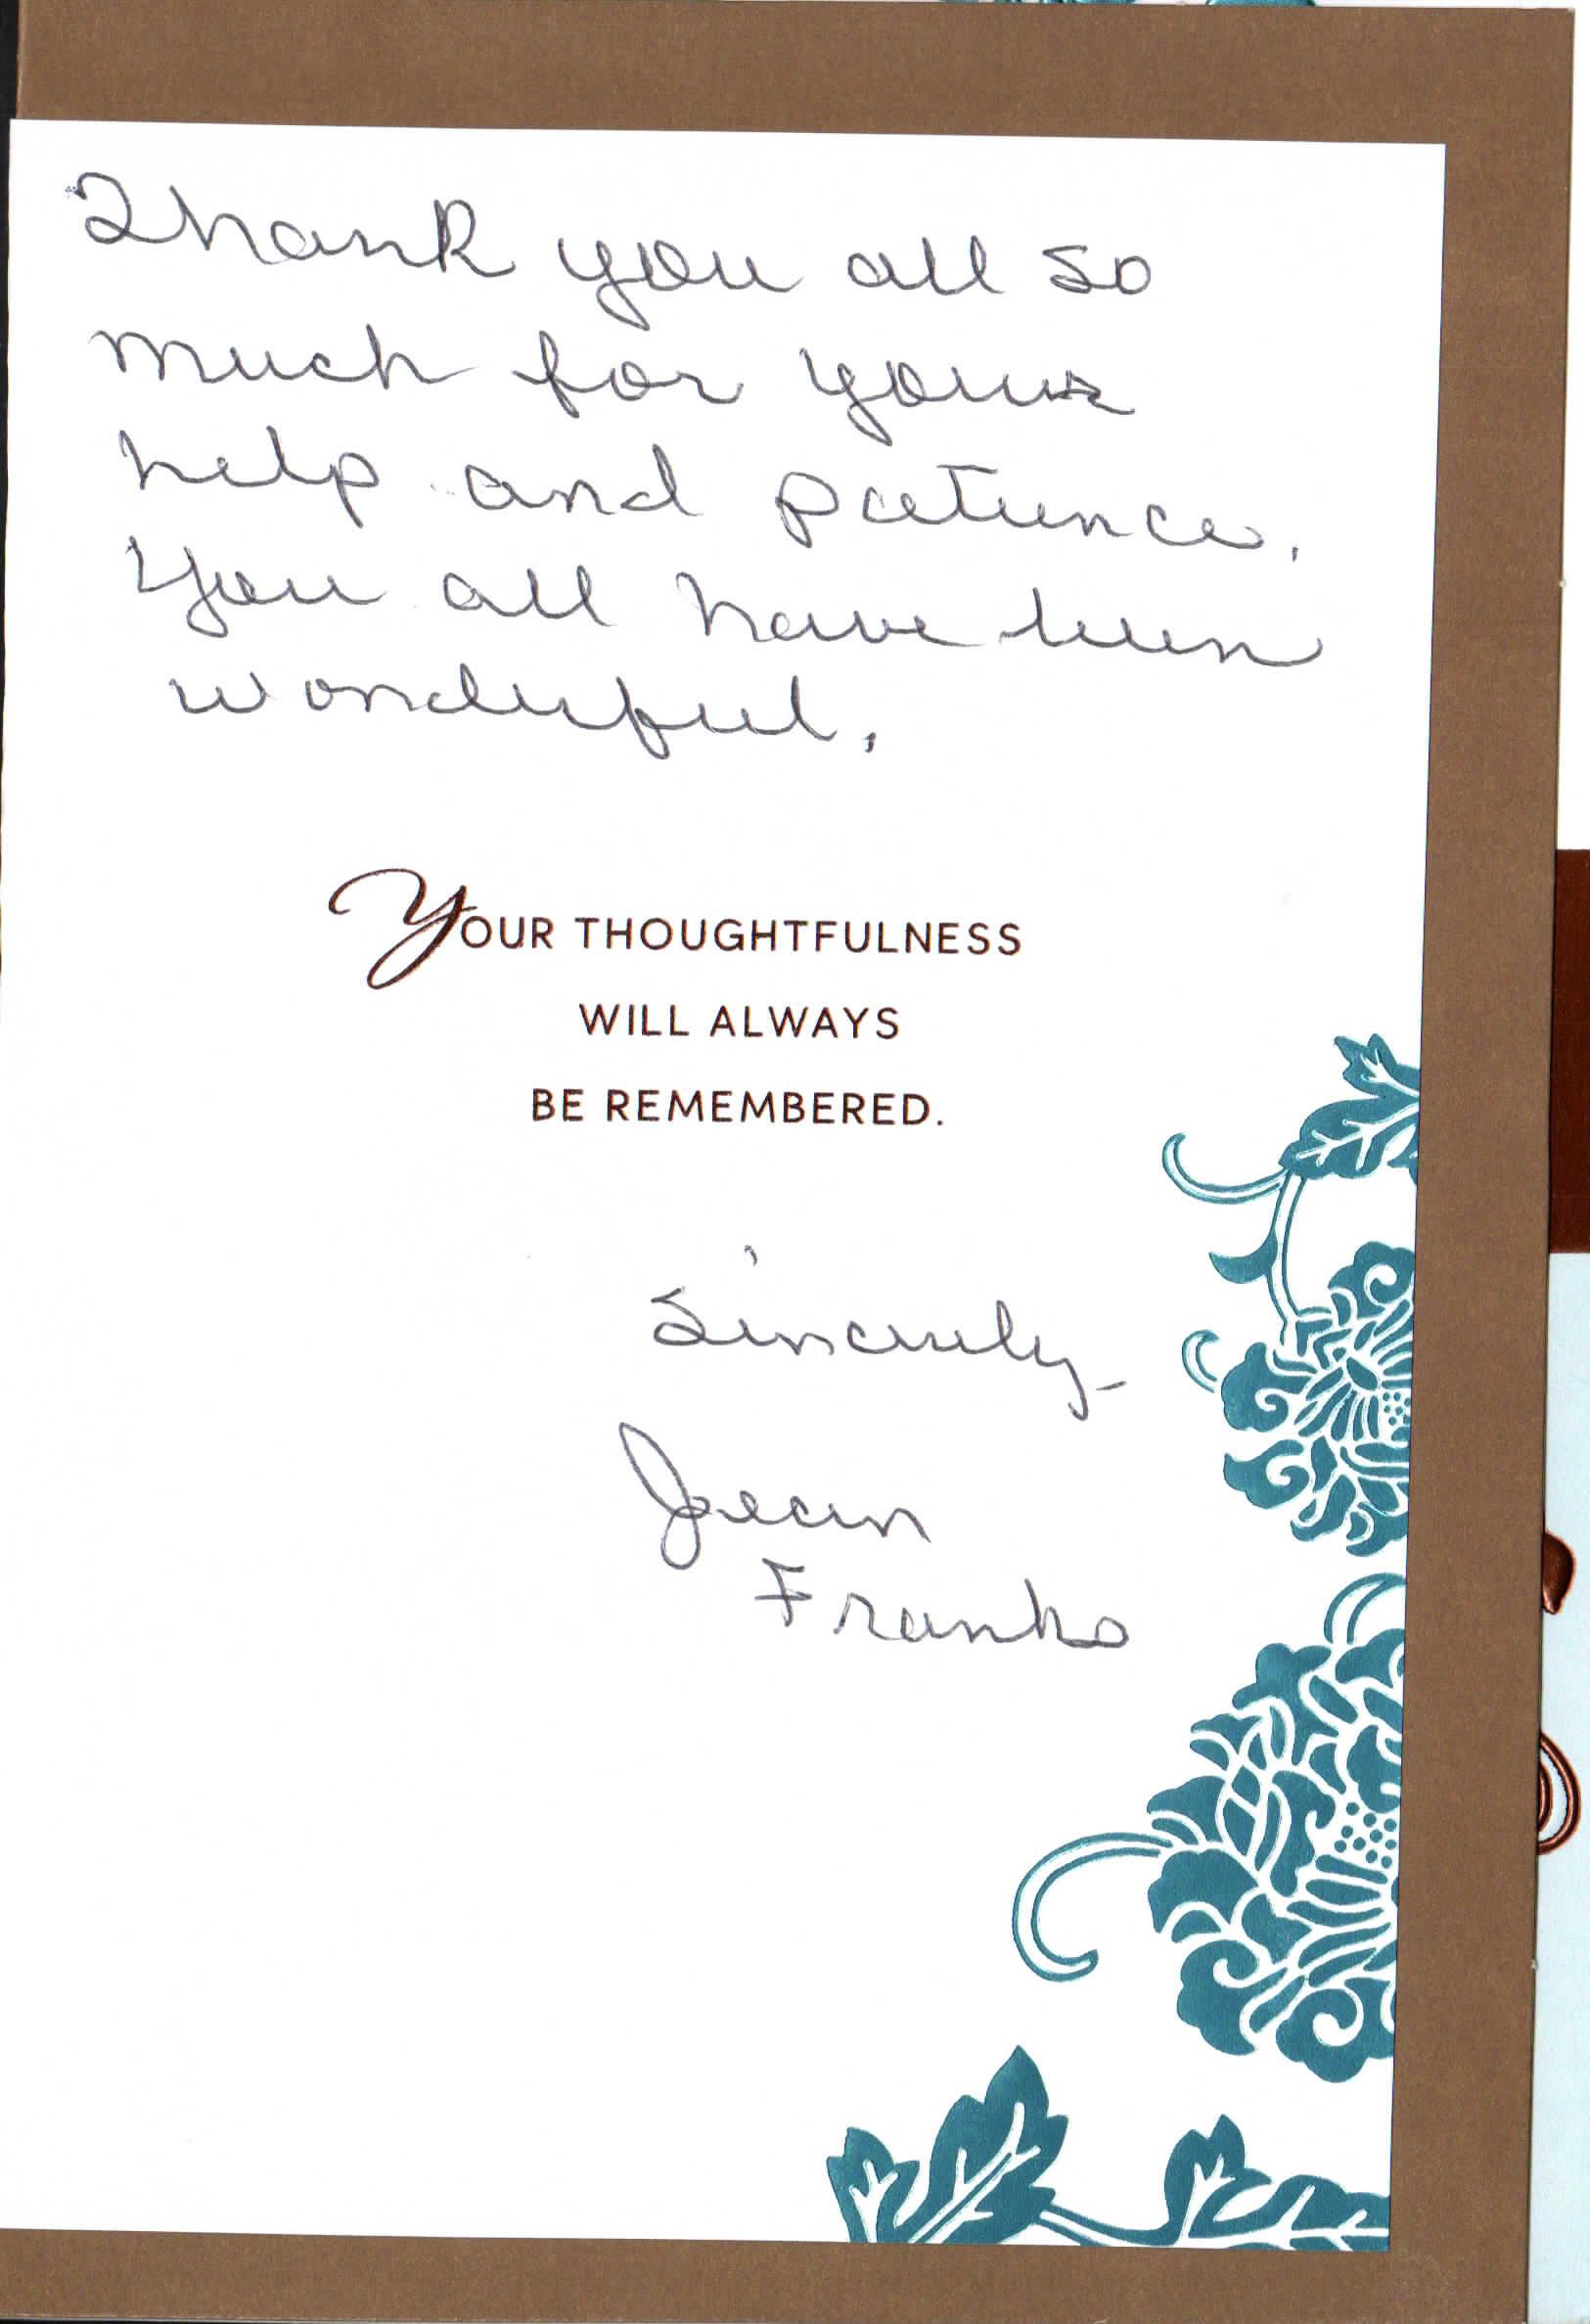 Thank you all so
much for your
help and patience.
You all have been
wonderful.
YOUR THOUGHTFULNESS
WILL ALWAYS
BE REMEMBERED.
Sincerely,
Jean
Franks